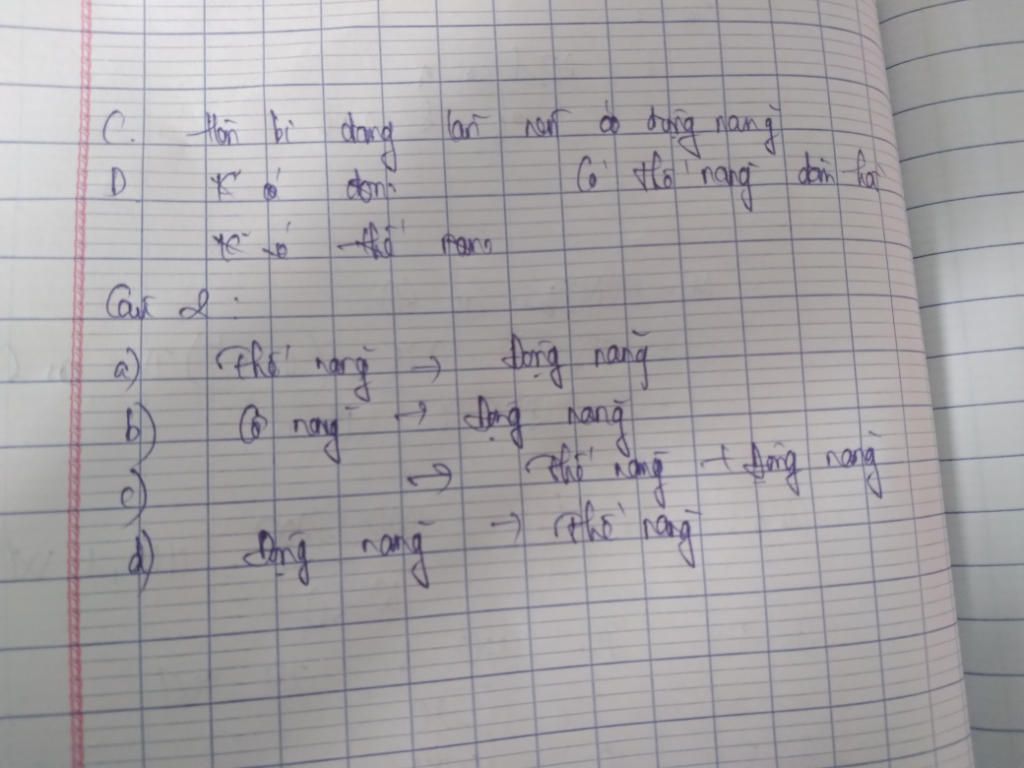 C. Hòn bi đang lăn nan có động năng
D K có đọn: Có thế năng đàn hồi
K có thế năng
Câu 2 :
a) Thế năng → Động năng
b) Cơ năng → Động năng
c) → Thế năng + Động năng
d) Động năng → Thế năng